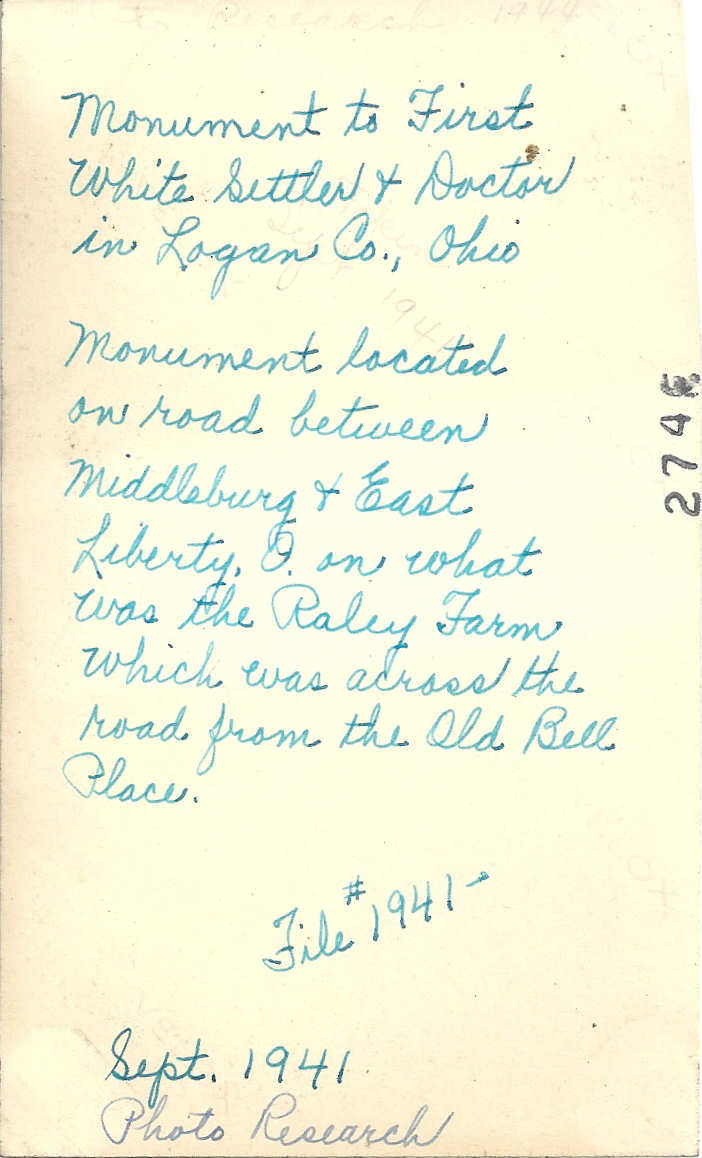 Research 1944
Monument to First
White Settler & Doctor
in Logan Co., Ohio
Monument located
on road between
Middleburg & East
Liberty, O. on what
was the Raley Farm
which was across the
road from the Old Bell
Place.
File #1941-
Sept. 1941
Photo Research
274